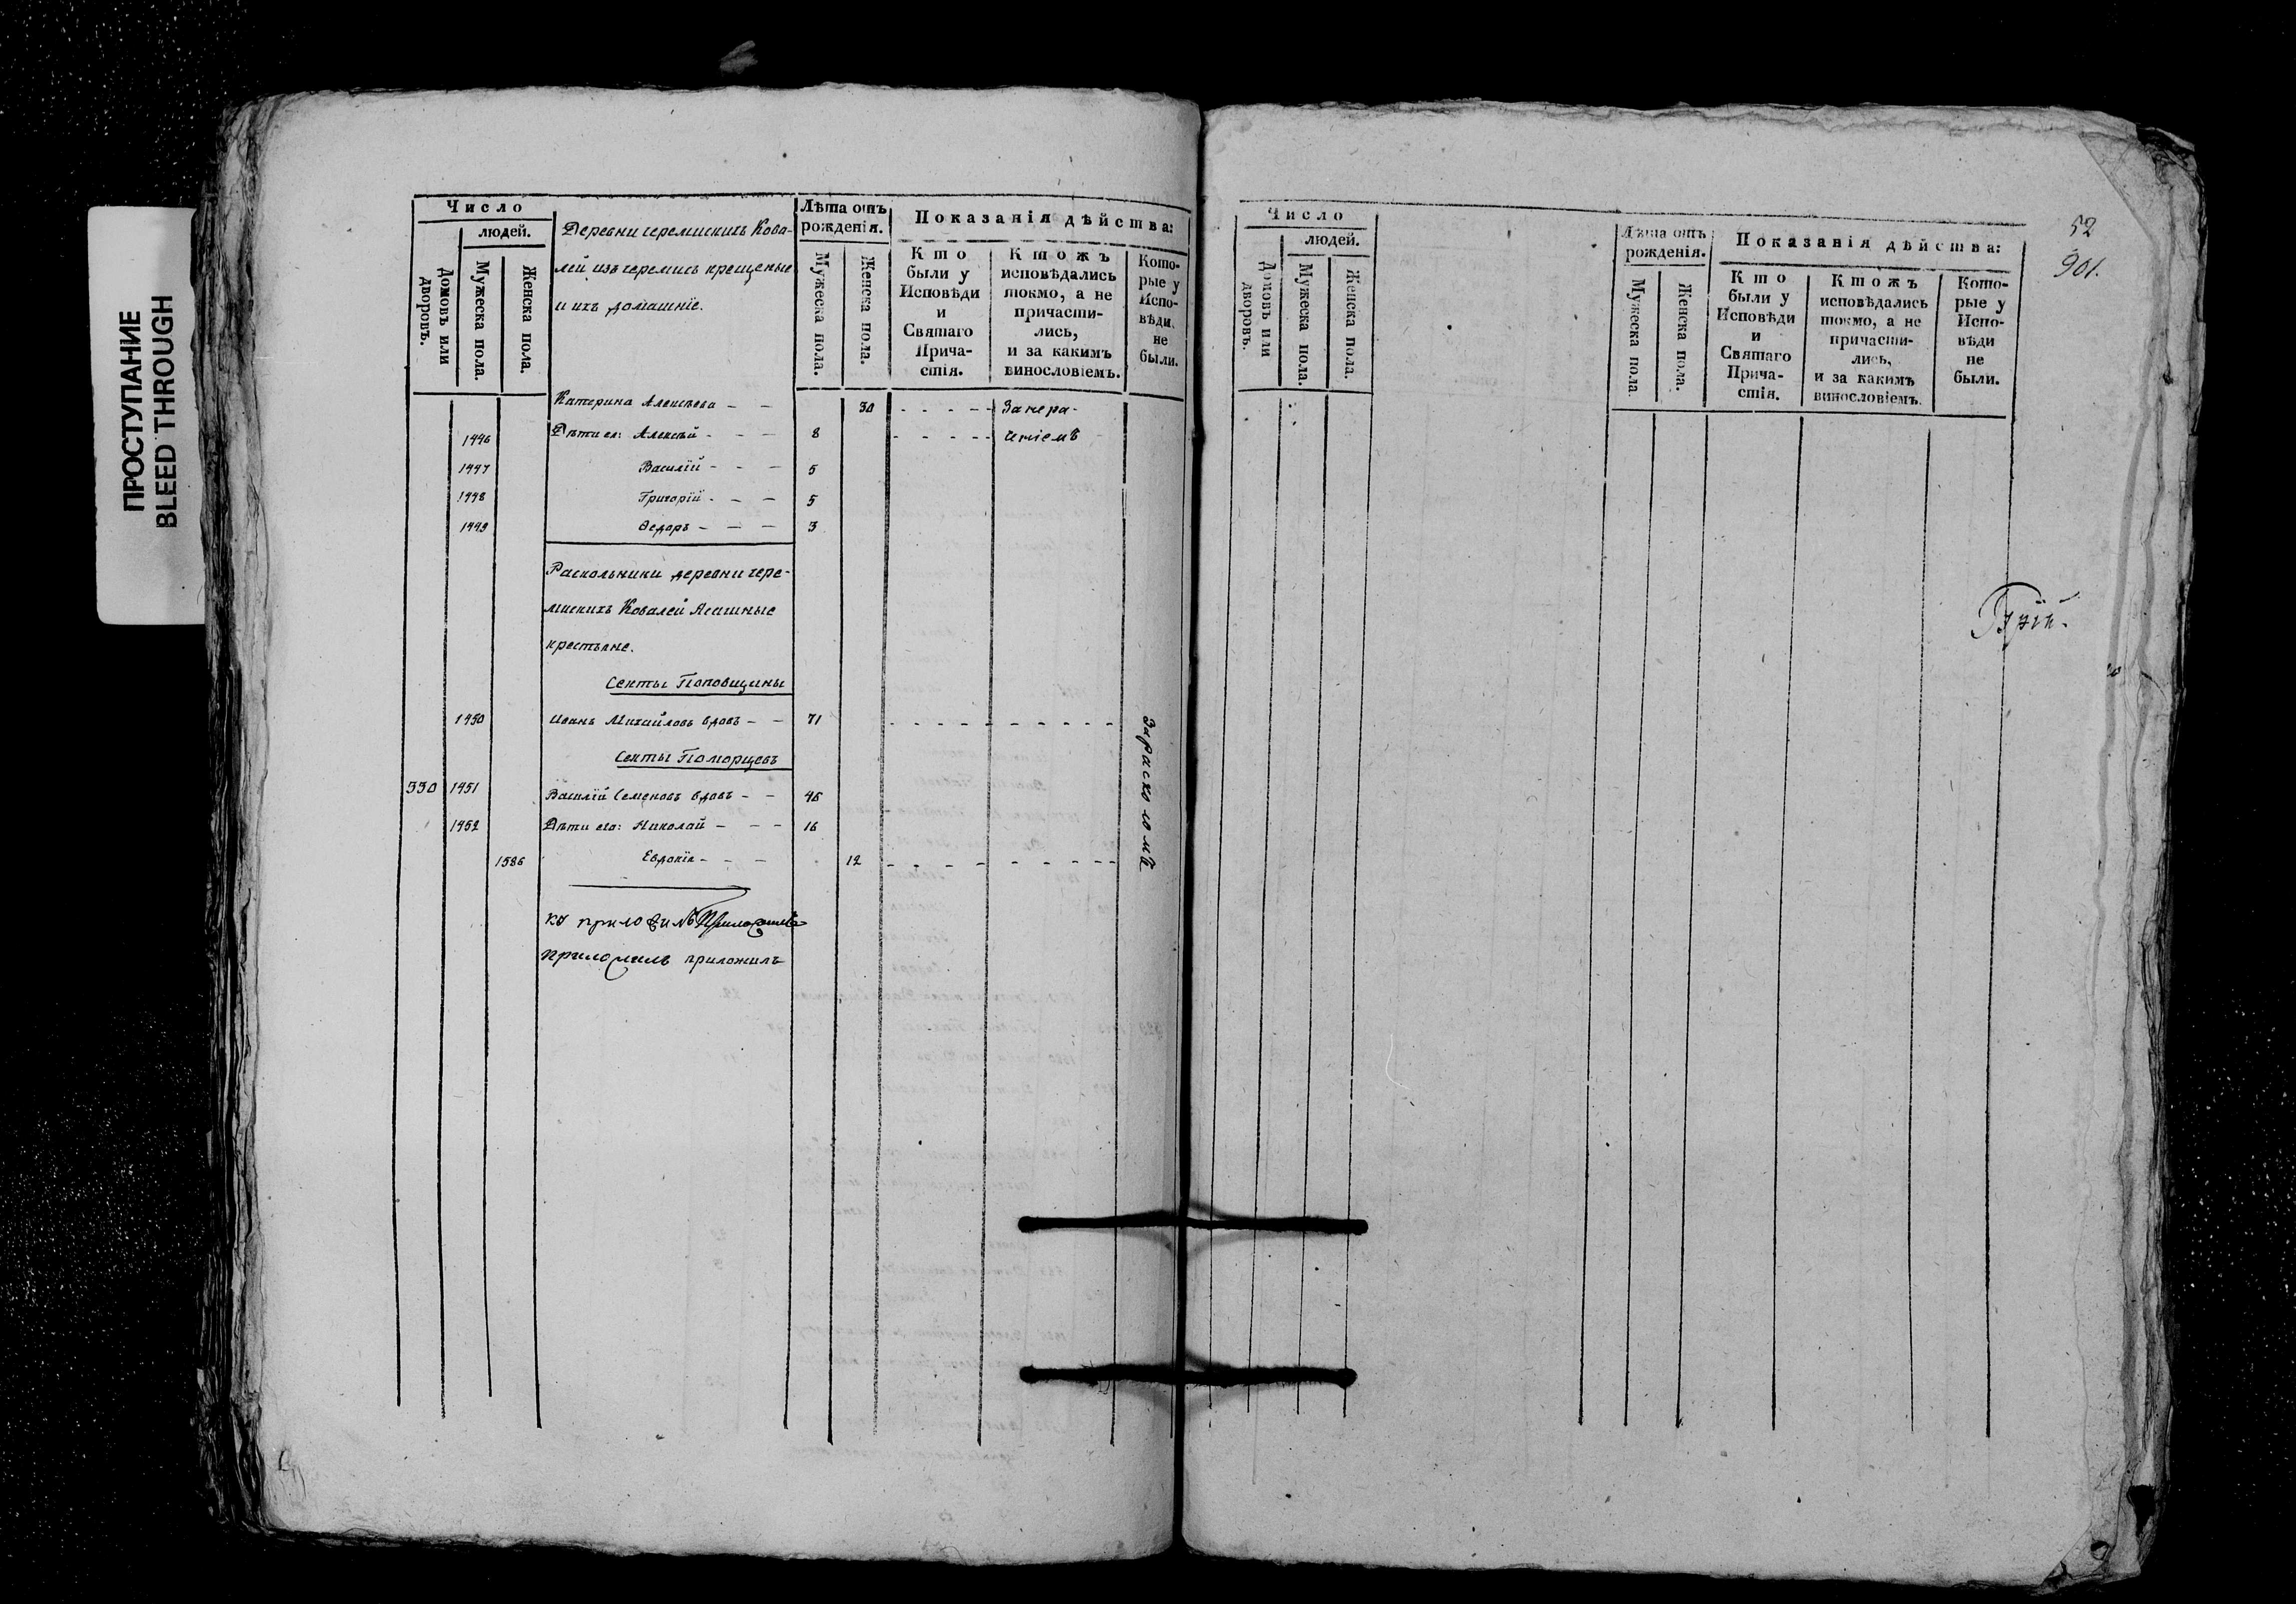 ПРОСТУПАНИЕ
BLEED THROUGH
Число
людей.
Домовъ или дворовъ.
Мужеска пола.
Женска пола.
Деревни черемискихъ Кова-
лей изъ черемисъ крещеные
и ихъ домашніе.
Лѣта отъ рожденія.
Мужеска пола.
Женска пола.
Показанія дѣйства:
Кто были у Исповѣди и Святаго Прича-стія.
Ктожъ исповѣдались токмо, а не причасти-лись, и за какимъ винословіемъ.
Кото-рые у Испо-вѣди не были.
Катерина Алексѣева - - 30 - - - - - Занера-
1446 Дѣти ея: Алексѣй - - - 8 - - - - - чиіемъ
1447 Василій - - - 5
1448 Григорій - - - 5
1449 Ѳедоръ - - - 3
Раскольники деревни чере-
мискихъ Ковалей Ясашные
крестьяне.
Секты Поповщины
1450 Иванъ Михайловъ вдовъ - - 71
Секты Поморцевъ
330 1451 Василій Семеновъ вдовъ - - 46
1452 Дѣти его: Николай - - - 16
1386 Евдокія - - - 12
За расколомъ
ко приложилъ
приложилъ приложилъ
Число
людей.
Домовъ или дворовъ.
Мужеска пола.
Женска пола.
Лѣта отъ рожденія.
Мужеска пола
Женска пола.
Показанія дѣйства:
Кто были у Исповѣди и Святаго Прича-стія.
Ктожъ исповѣдались токмо, а не причасти-лись, и за какимъ винословіемъ.
Кото-рые у Испо-вѣди не были.
52
901.